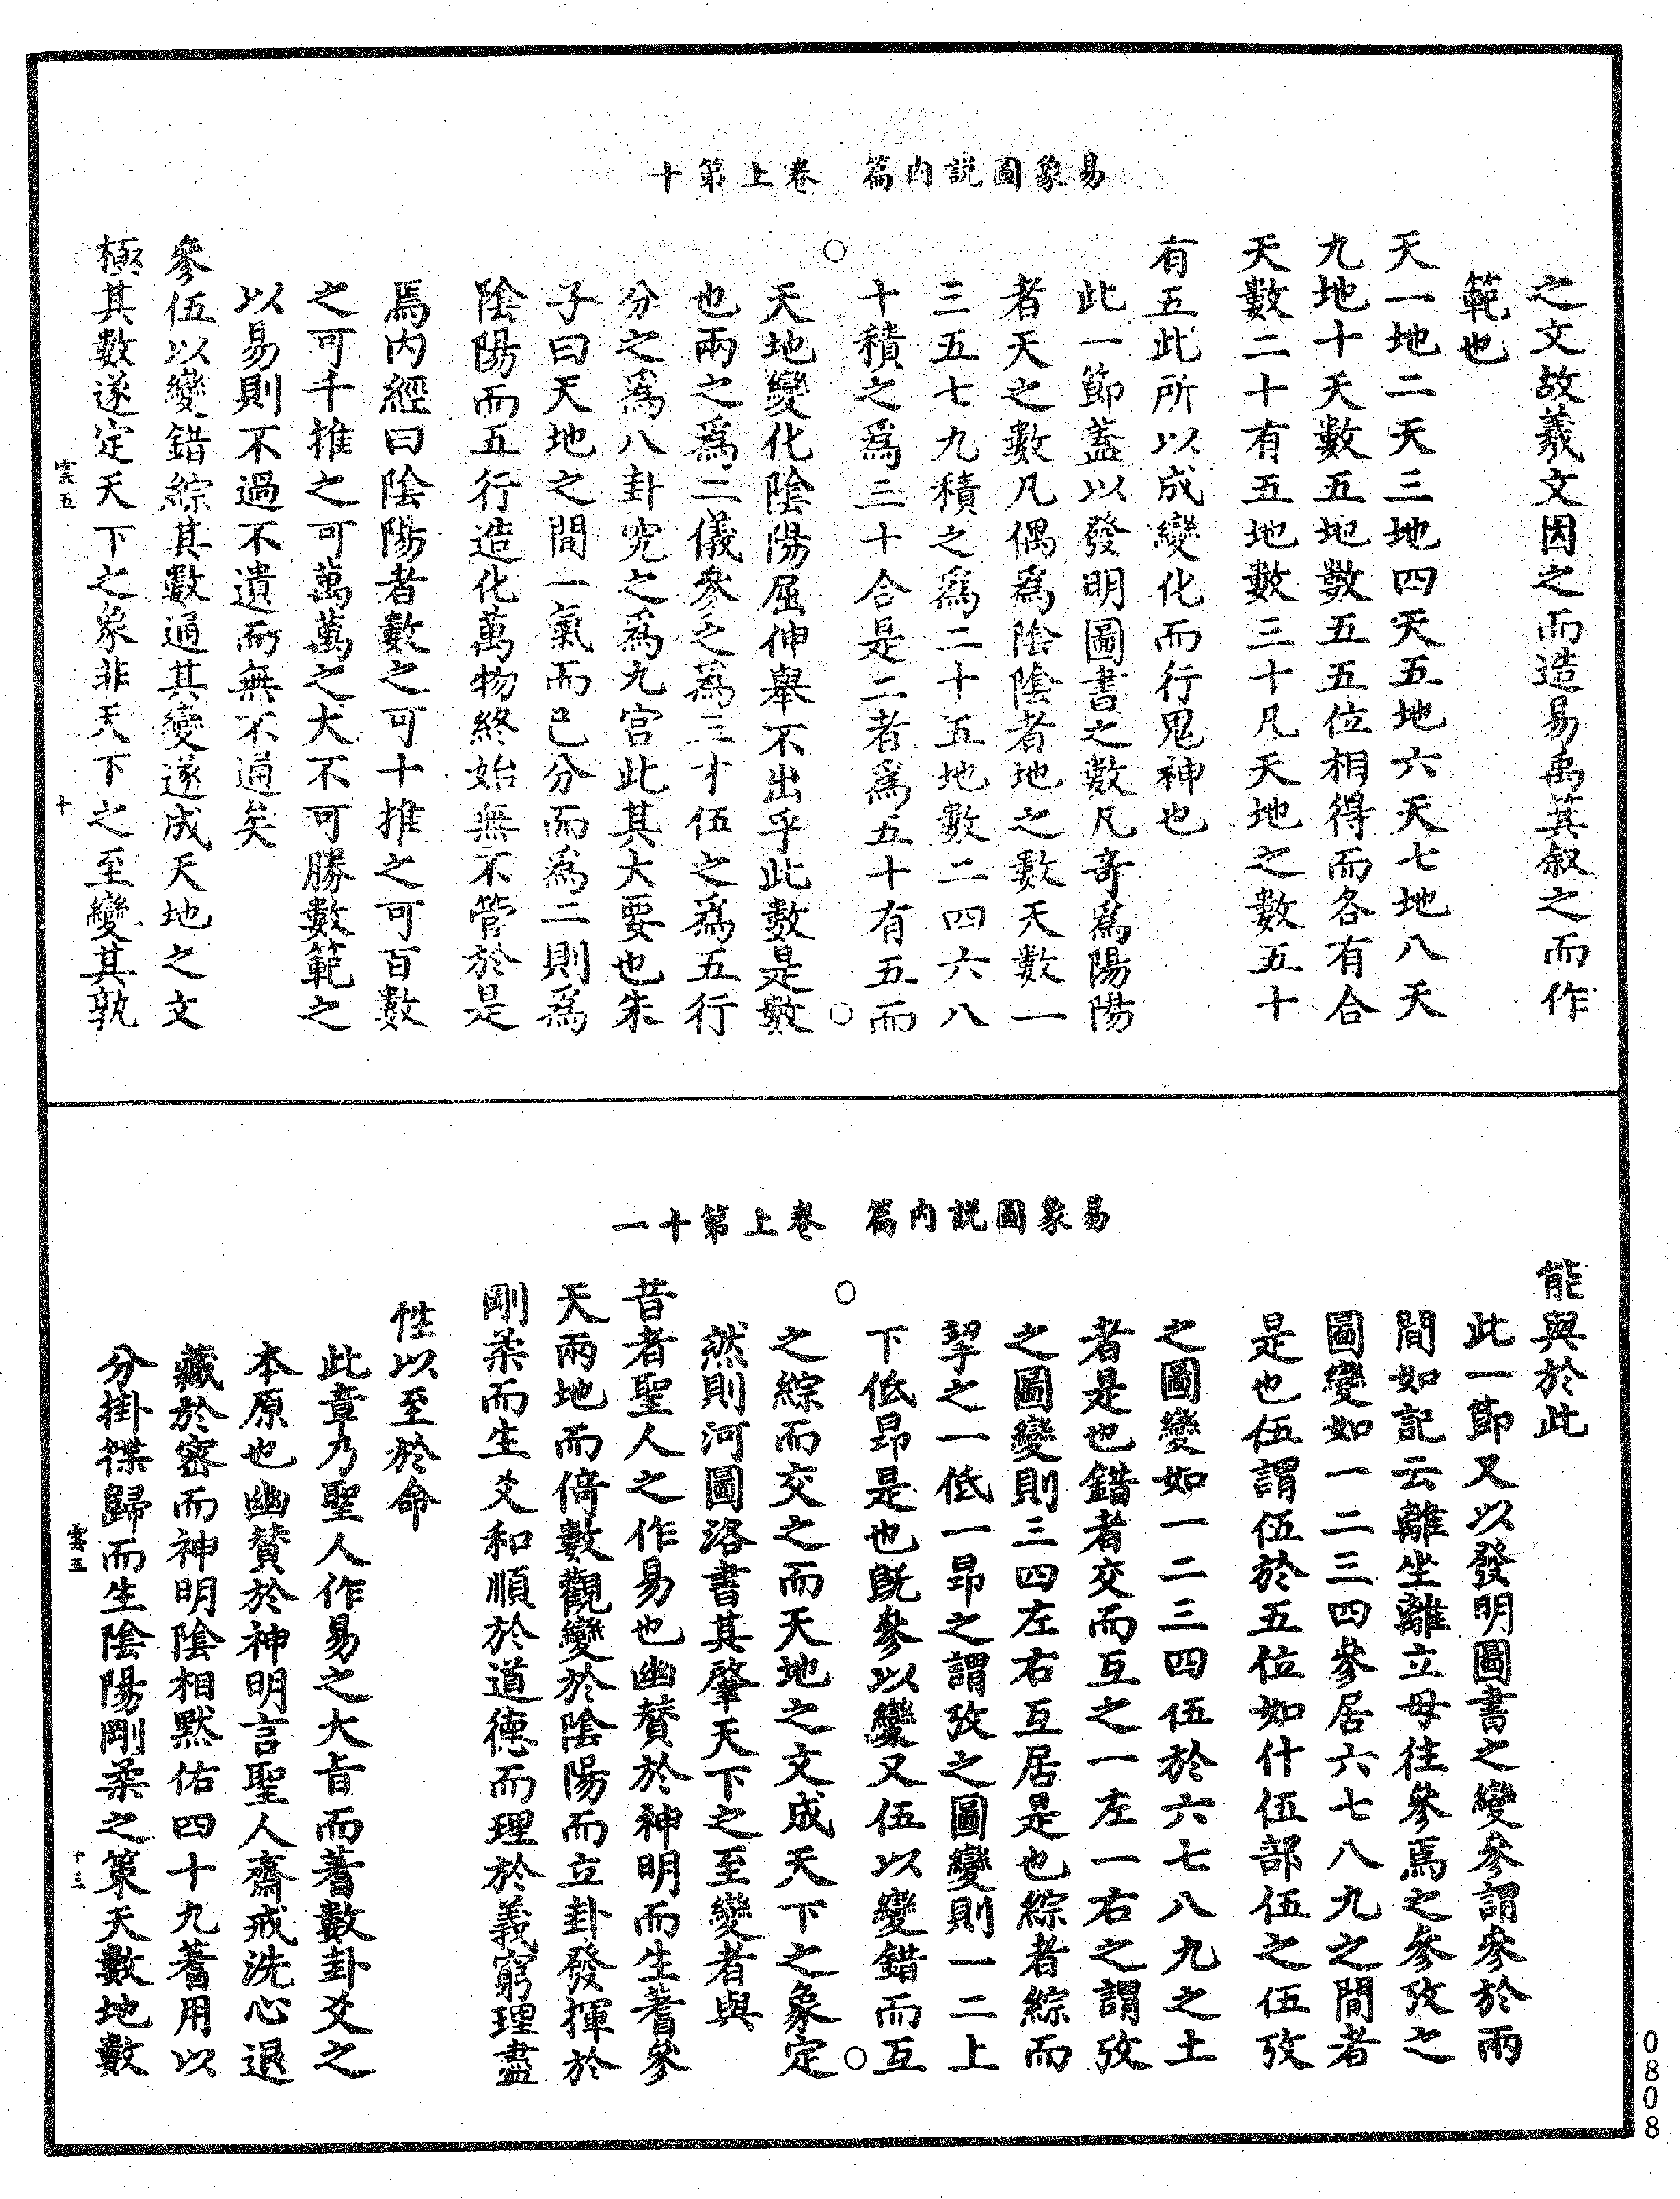 易象圖説内篇　卷上第十
之文故羲文因之而造易禹箕叙之而作
範也
天一地二天三地四天五地六天七地八天
九地十天數五地數五五位相得而各有合
天數二十有五地數三十凡天地之數五十
有五此所以成變化而行鬼神也
此一節蓋以發明圖書之數凡奇爲陽陽
者天之數凡偶爲陰陰者地之數天數一
三五七九積之爲二十五地數二四六八
十積之爲三十合是二者爲五十有五而
天地變化陰陽屈伸舉不出乎此數是數
也兩之爲二儀參之爲三才伍之爲五行
分之爲八卦究之爲九宮此其大要也朱
子曰天地之間一氣而已分而爲二則爲
陰陽而五行造化萬物終始無不管於是
焉内經曰陰陽者數之可十推之可百數
之可千推之可萬萬之大不可勝數範之
以易則不過不遺而無不通矣
參伍以變錯綜其數通其變遂成天地之文
極其數遂定天下之象非天下之至變其孰
雲五
十
易象圖説内篇　卷上第十一
能與於此
此一節又以發明圖書之變參謂參於兩
間如記云離坐離立毋往參焉之參攷之
圖變如一二三四參居六七八九之間者
是也伍謂伍於五位如什伍部伍之伍攷
之圖變如一二三四伍於六七八九之土
者是也錯者交而互之一左一右之謂攷
之圖變則三四左右互居是也綜者綜而
挈之一低一昂之謂攷之圖變則一二上
下低昂是也既參以變又伍以變錯而互
之綜而交之而天地之文成天下之象定
然則河圖洛書其肇天下之至變者與
昔者聖人之作易也幽贊於神明而生蓍參
天兩地而倚數觀變於陰陽而立卦發揮於
剛柔而生爻和順於道德而理於義窮理盡
性以至於命
此章乃聖人作易之大旨而蓍數卦爻之
本原也幽贊於神明言聖人齋戒洗心退
藏於密而神明陰相默佑四十九蓍用以
分掛揲歸而生陰陽剛柔之策天數地數
雲五
十三
0808